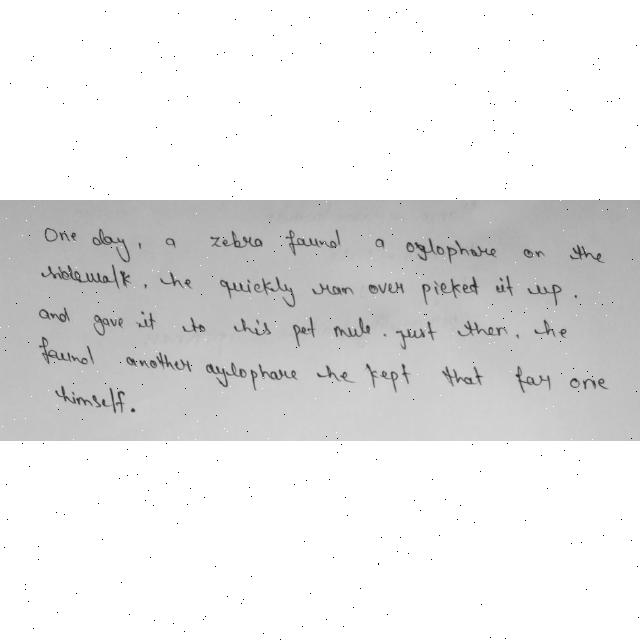 One day, a zebra found a oxlophare on the
sidewalk, he quickly ran over picked it up.
and gave it to his pet mule. just then, he
found another aylophare he kept that far one
himself.